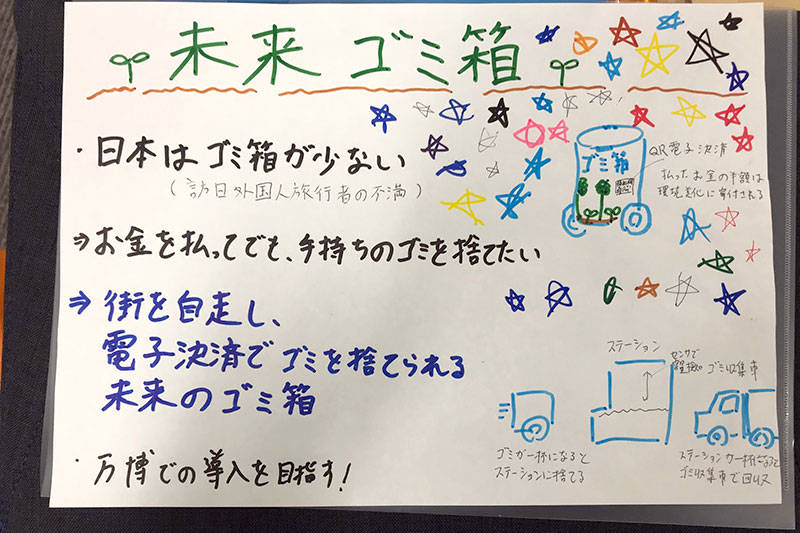 未来 ゴミ箱
・日本は ゴミ箱が少ない
(訪日外国人旅行者の不満)
ゴミ箱
QR電子決済
払ったお金の半額は
環境美化に寄付される
⇒お金を払ってでも、手持ちのゴミを捨てたい
⇒ 街を自走し、
電子決済で ゴミを捨てられる
未来のゴミ箱
・万博での導入を目指す!
ステーション
センサで
ゴミ収集車
ゴミが一杯になると
ステーションに捨てる
ステーションが一杯になると
ゴミ収集車で回収